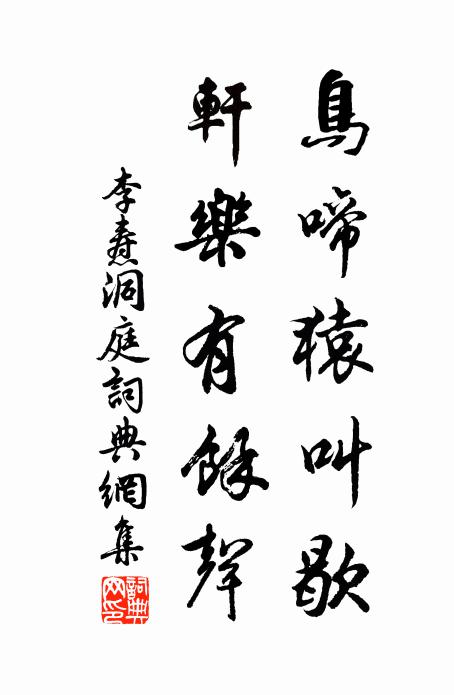 鳥啼猿叫歇
軒樂有餘聲
李燾洞庭詞典網集
詞典網印